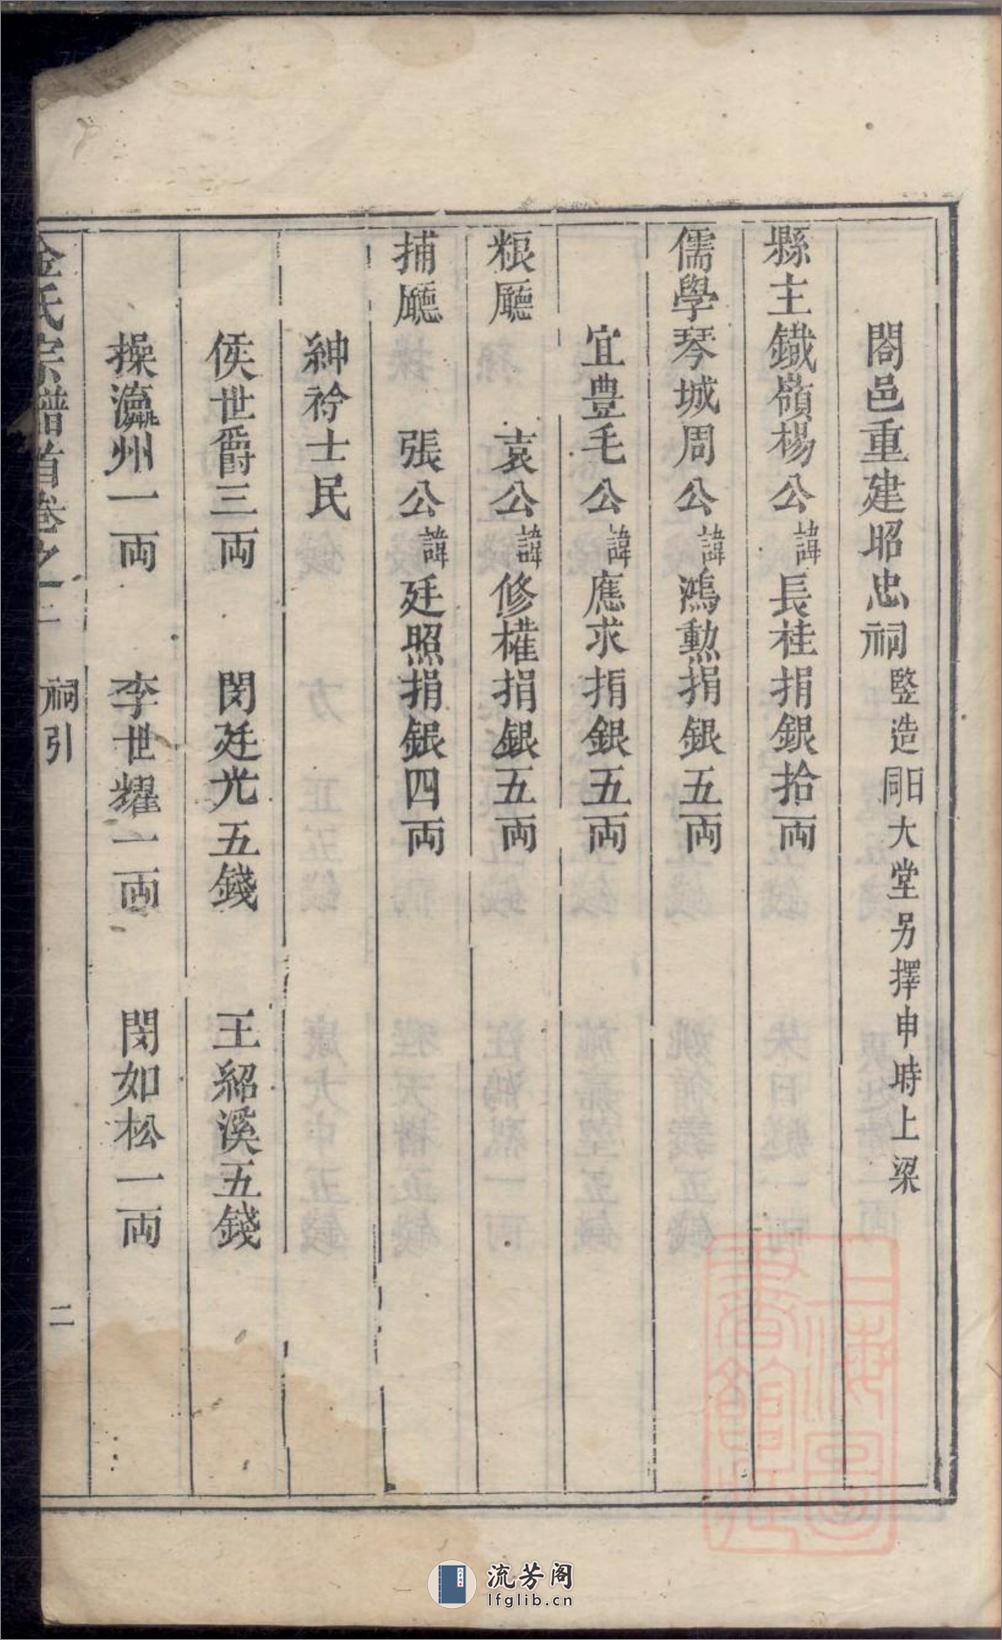 閤邑重建昭忠祠竪造同日大堂另擇申時上梁
縣主鐵嶺楊公諱長桂捐銀拾両
儒學琴城周公諱鴻勲捐銀五両
宜豊毛公諱應求捐銀五両
粮廳 袁公諱修權捐銀五両
捕廳 張公諱廷照捐銀四両
紳衿士民
侯世爵三両 閔廷光五錢 王紹溪五錢
操瀛州一両 李世耀一両 閔如松一両
金氏宗譜首卷之二 祠引 二
上海圖書館藏
流芳阁
lfglib.cn